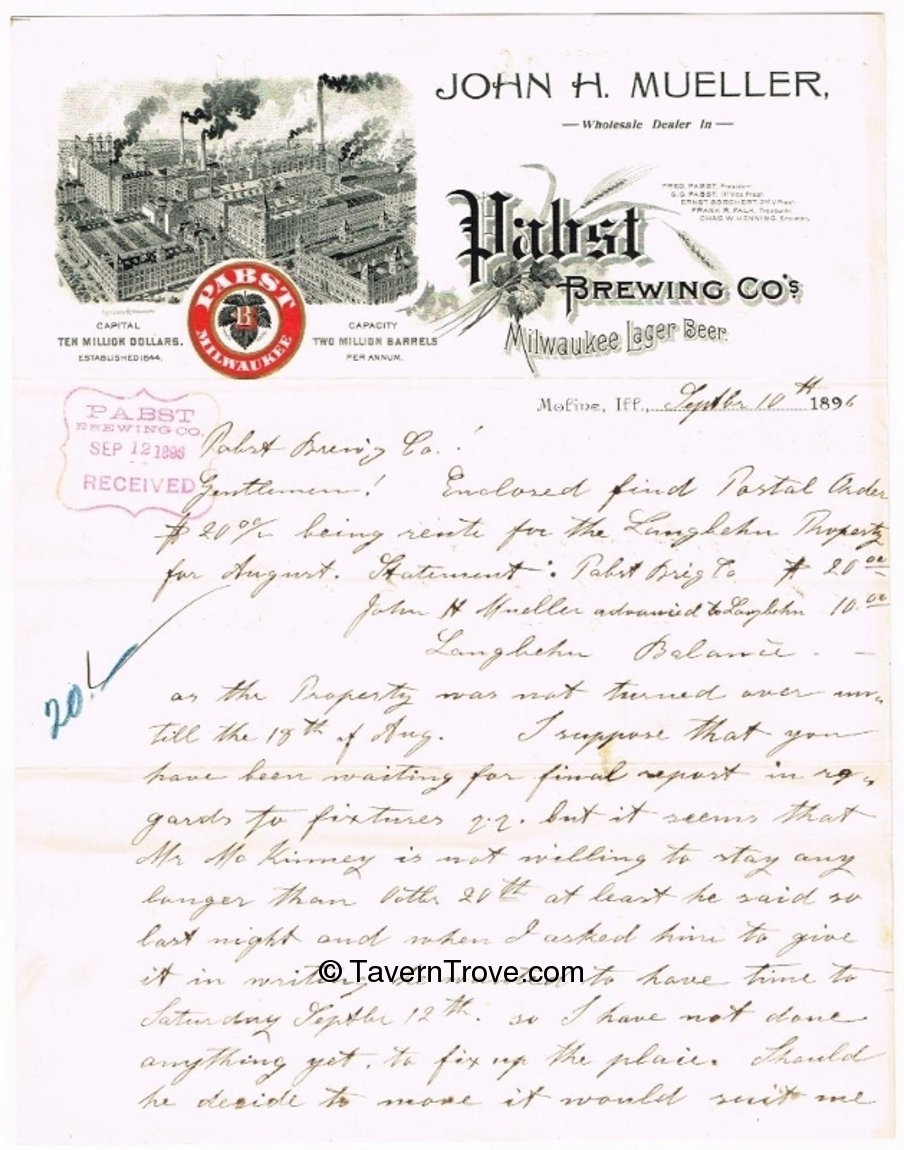 JOHN H. MUELLER,
Wholesale Dealer In
FRED. PABST, President.
G.G. PABST, 1st Vice Prest.
ERNST BORCHERT, 2nd V. Prest.
FRANK R. FALK, Treasurer.
CHAS W. HENNING, Secretary.
Pabst
BREWING CO'S
Milwaukee Lager Beer.
PABST
B
MILWAUKEE
CAPITAL
TEN MILLION DOLLARS.
ESTABLISHED 1844.
CAPACITY
TWO MILLION BARRELS
PER ANNUM.
Moline, Ill., Septbr 10th 1896
PABST
BREWING CO.
SEP 12 1896
RECEIVED
Pabst Brewig Co.!
Gentlemen! Enclosed find Postal Order
$ 20 00/ being rente for the Langbehn Property
for August. Statement: Pabst Brig Co $ 20 00
John H Mueller advanced to Langbehn 10. 00
Langbehn Balance - -
20/
as the Property was not turned over un-
till the 18th of Aug. I suppose that you
have been waiting for final report in re-
gards to fixtures but it seems that
Mr McKinney is not willing to stay any
longer than Octbr 20th at least he said so
last night and when I asked him to give
it in writing to have time to
Saturday Septbr 12th. so I have not done
anything yet, to fix up the place. Should
he decide to move it would suit me
© TavernTrove.com